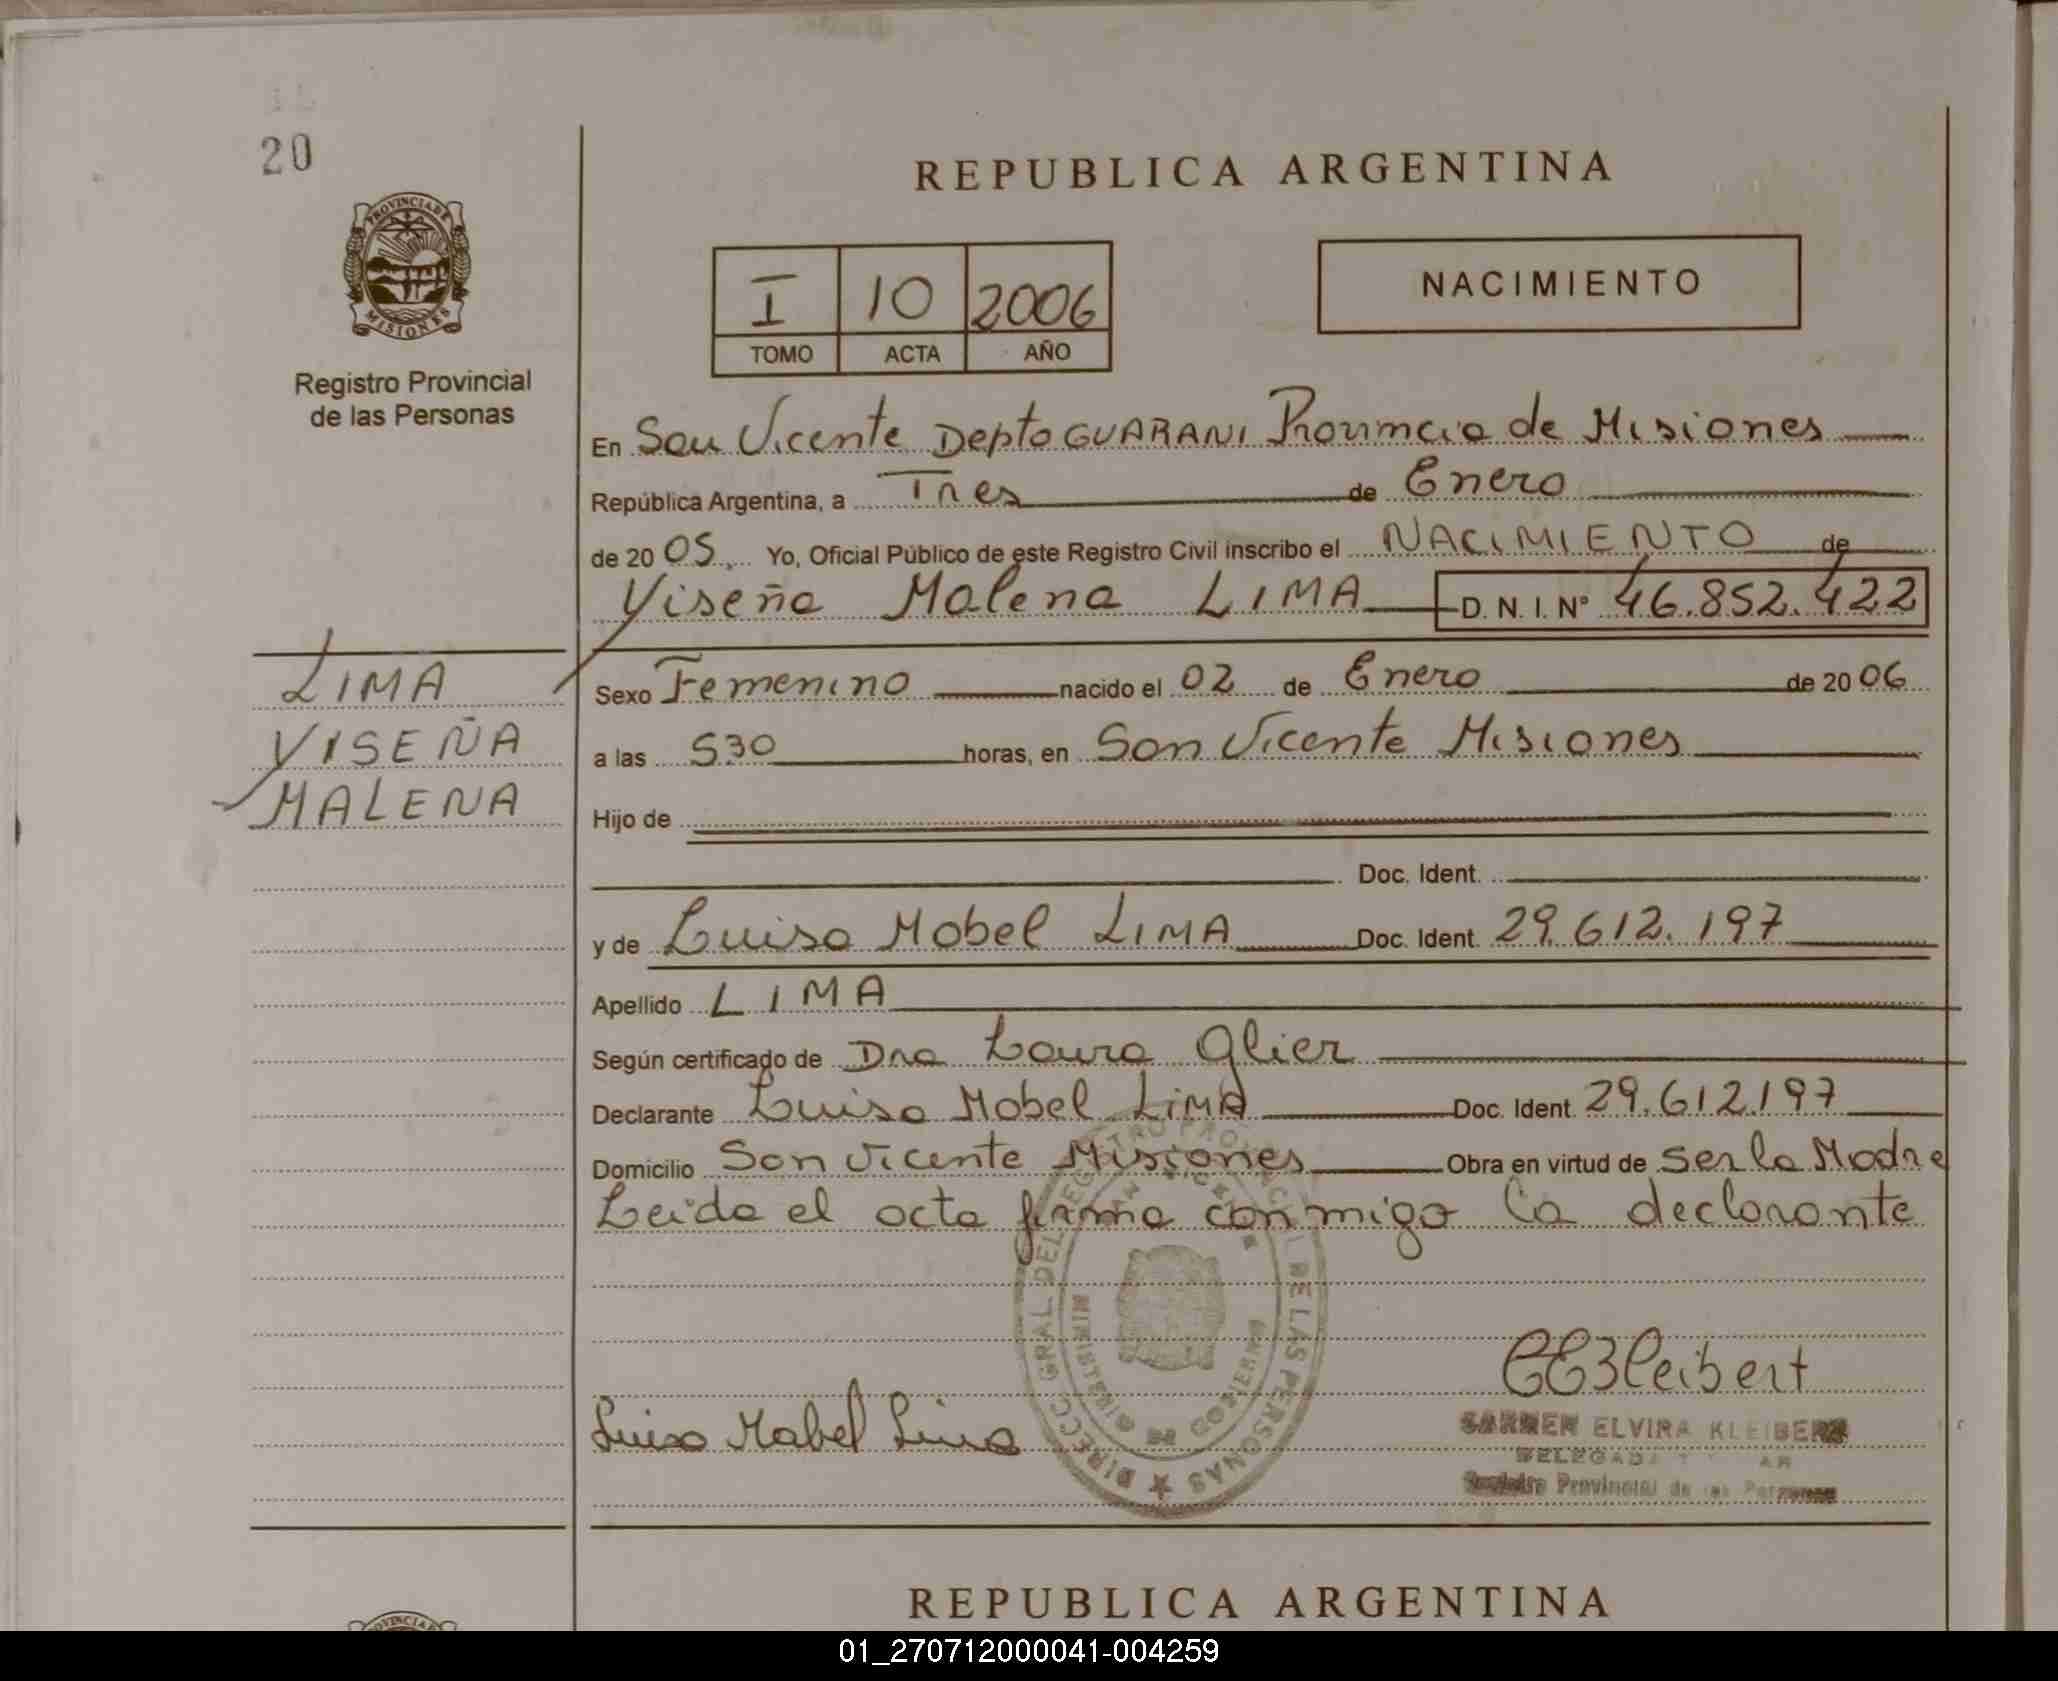 20
REPUBLICA ARGENTINA
PROVINCIA DE
MISIONES
I 10 2006
TOMO ACTA AÑO
NACIMIENTO
Registro Provincial
de las Personas
En San Vicente Depto GUARANI Provincia de Misiones
República Argentina, a Tres de Enero
de 20 05 Yo, Oficial Público de este Registro Civil inscribo el NACIMIENTO de
Viseña Malena LIMA D. N. I. Nº 46.852.422
LIMA
VISEÑA
MALENA
Sexo Femenino nacido el 02 de Enero de 20 06
a las 530 horas, en San Vicente Misiones
Hijo de
Doc. Ident.
y de Luisa Mabel LIMA Doc. Ident. 29.612.197
Apellido LIMA
Según certificado de Dra Laura Glier
Declarante Luisa Mabel LIMA Doc. Ident. 29.612197
Domicilio San Vicente Misiones Obra en virtud de ser la Madre
Leida el acta firma conmigo la declarante
DIRECC. GRAL. DEL REGISTRO PROVINCIAL DE LAS PERSONAS
MINISTERIO DE GOBIERNO
Luisa Mabel Lima
CARMEN ELVIRA KLEIBERT
DELEGADA
Registro Provincial de las Personas
REPUBLICA ARGENTINA
01_270712000041-004259